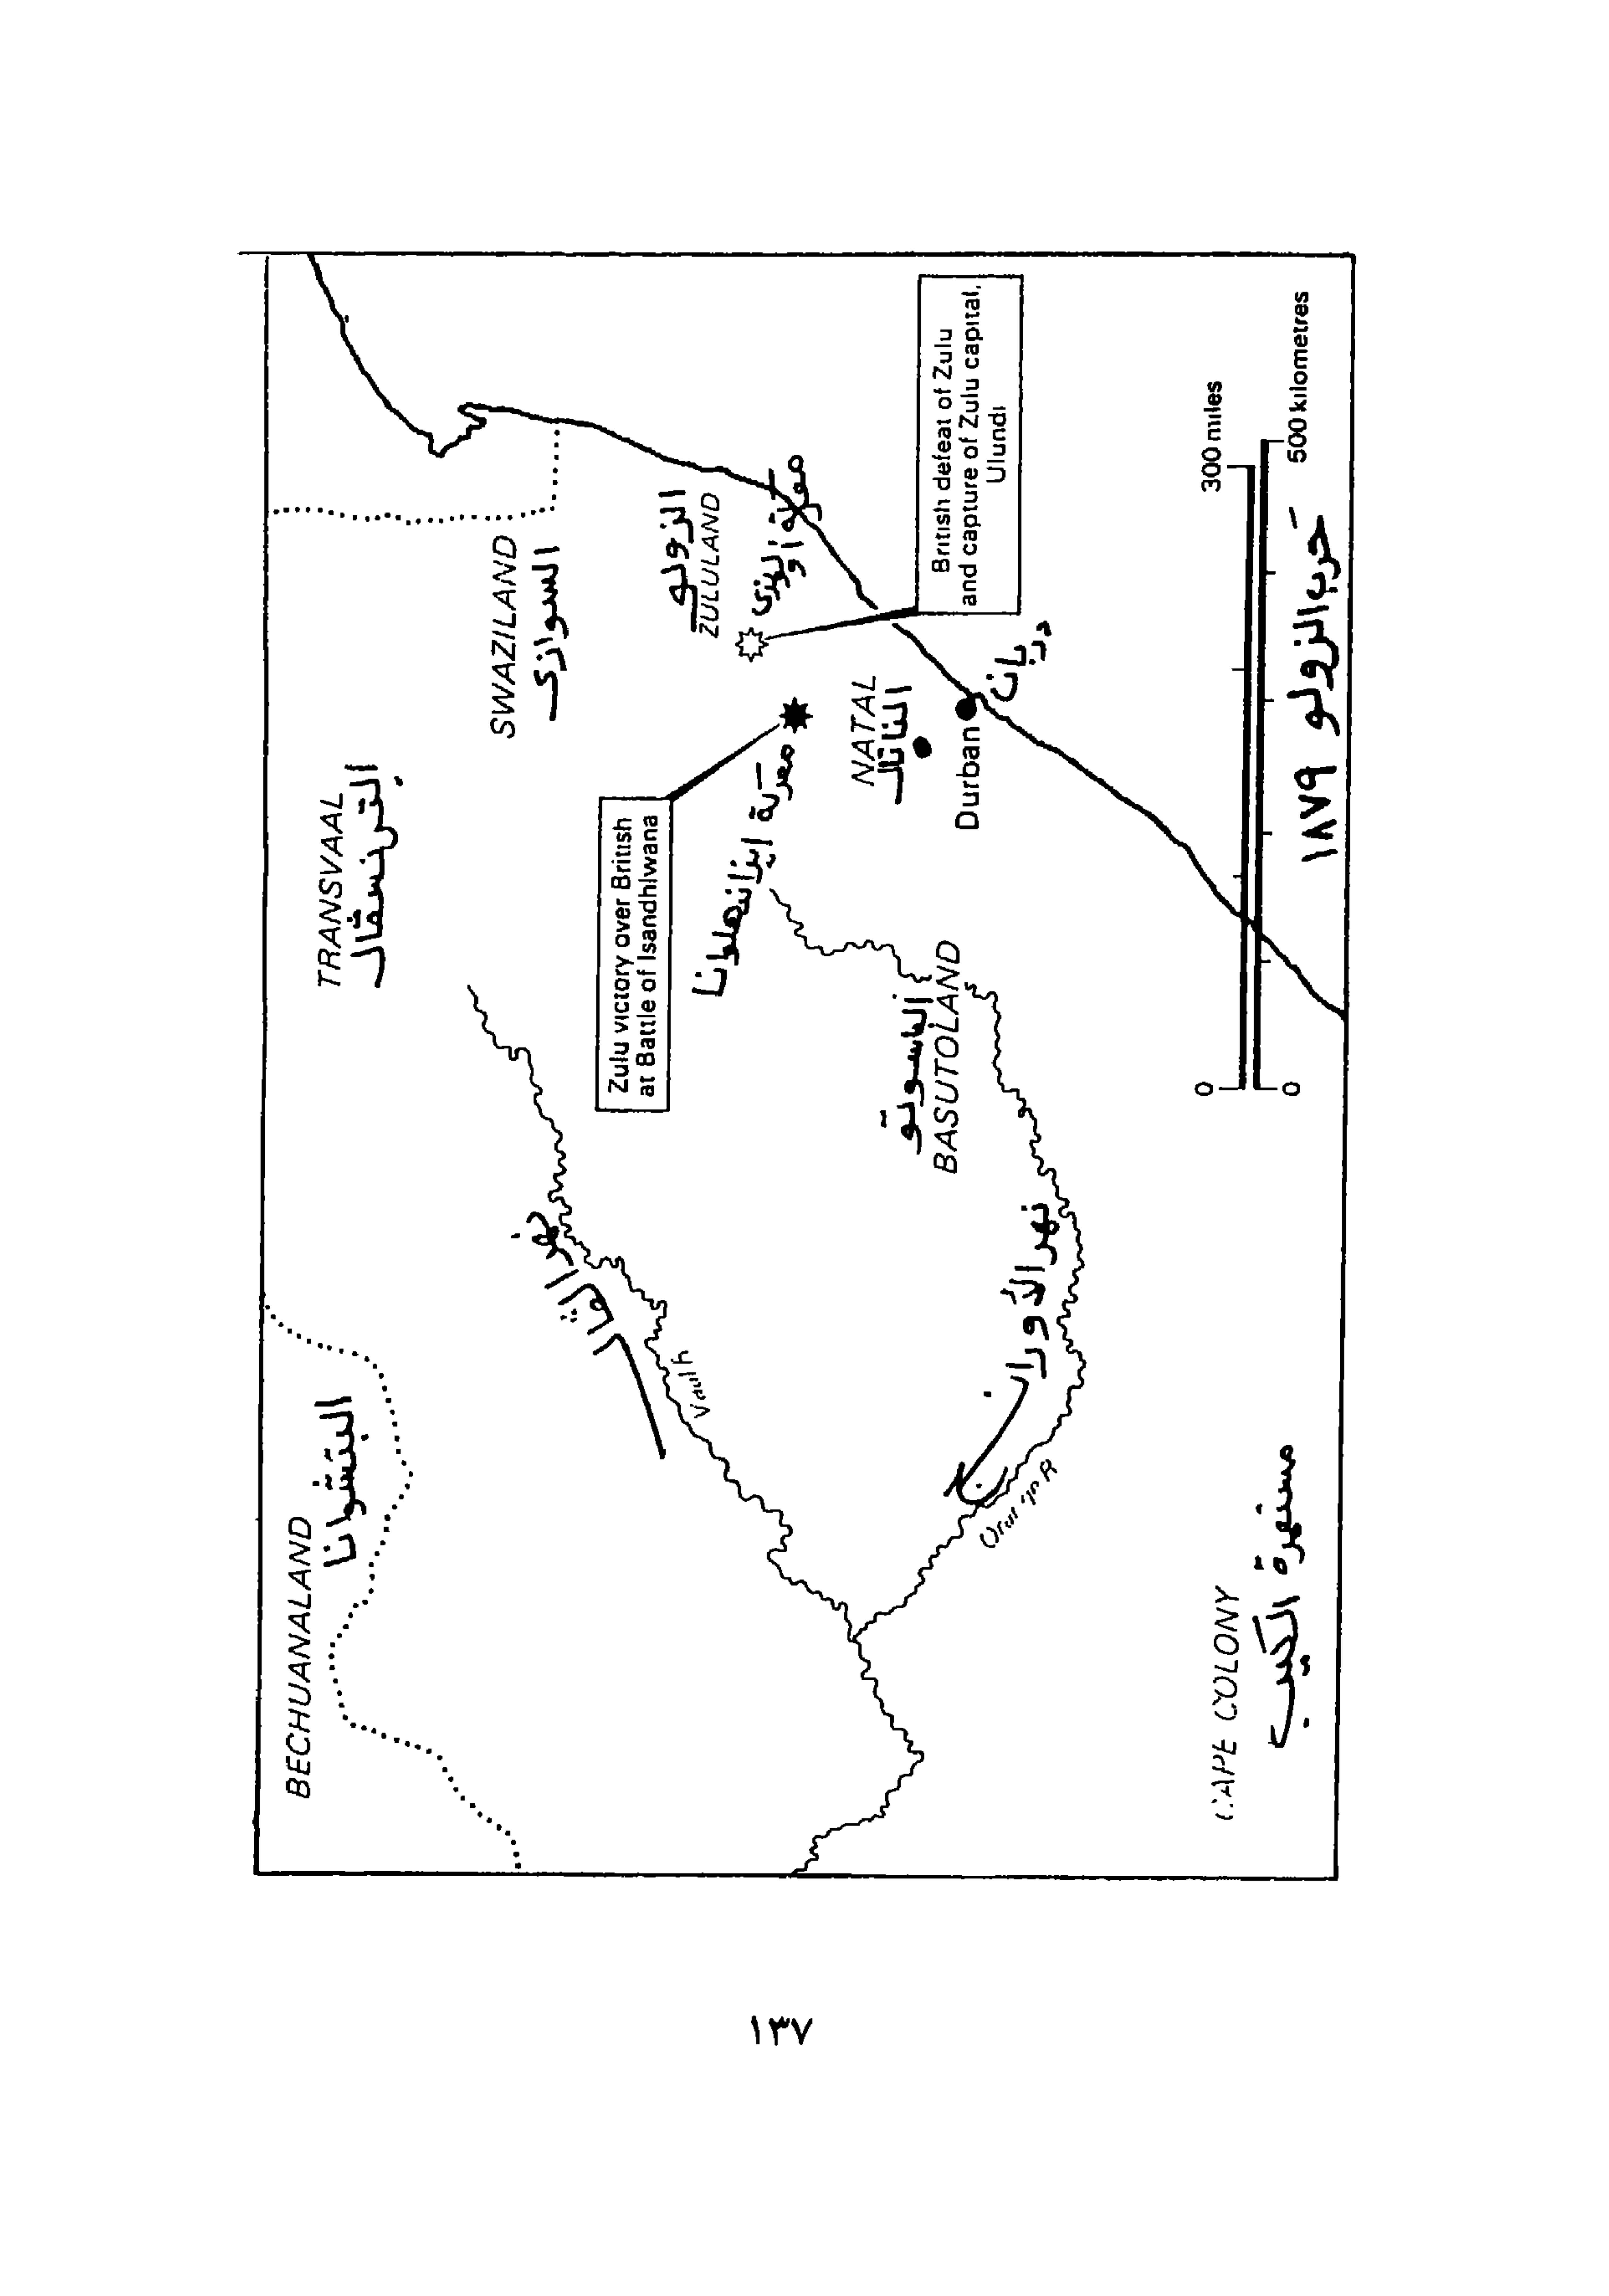 BECHUANALAND
البتشوانا
TRANSVAAL
الترنسڤال
SWAZILAND
السوازى
Zulu victory over British
at Battle of Isandhlwana
معركة ايزاندهلوانا
الزولو
ZULULAND
معركة أولندى
British defeat of Zulu
and capture of Zulu capital,
Ulundi
NATAL
الناتال
Durban
دربان
نهر الڤال
الباسوتو
BASUTOLAND
نهر الأورانج
Orange R
CAPE COLONY
مستعمرة الكيب
300 miles
0
0
500 kilometres
حرب الزولو ١٨٧٩
١٣٧